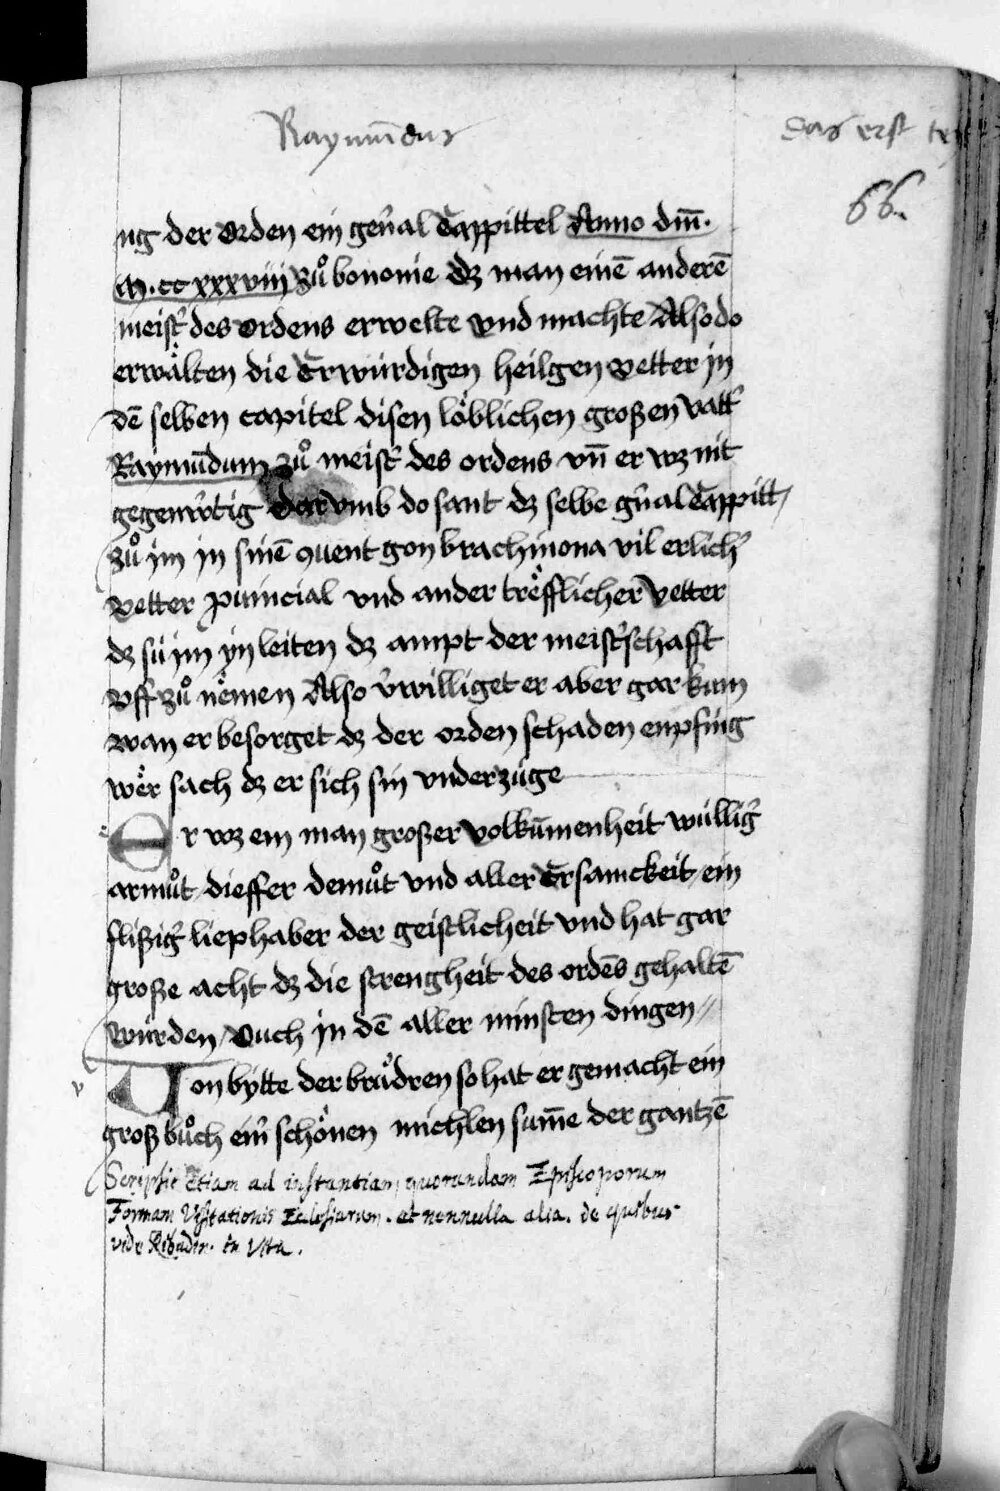 Raymūdus
das erst
66.
ng der Orden ein geṅal Cappittel Anno dm̄.
M.cc xxxviij zů bononie dz man einē anderē
meist' des Ordens erwelte vnd machte Also do
erwälten die Erwúrdigen heilgen vetter jn
dē selben capitel disen löblichen großen vatt'
Raymūdum zů meist' des ordens vn̄ er wz nit
gegenẃtig dar vmb do sant dz selbe gṅal Cappitt/
zů jm jn sinē ɔuent gon brachinona vil erlich'
vetter pͥuincial vnd ander trëfflicher vetter
dz sú jm yn leiten dz ampt der meist'schafft
vff zů nëmen Also v'williget er aber gar kum
wan er besorget dz der orden schaden enpfing
wër sach dz er sich sin vnderzúge
Er wz ein man großer volkūmenheit willig'
armůt / dieffer demůt vnd aller Ersamckeit / ein
flißig' liephaber der geistlicheit vnd hat gar
große acht dz die strengheit des ordēs gehaltē
wúrden / Ouch jn dē aller minsten dingen //
Von bytte der brůdren so hat er gemacht ein
groß bůch ein' schönen michlen sum̄e der gantzē
Scripsit etiam ad instantiam quorundam Episcoporum
Formam Visitationis Ecclesiarum. et nonnulla alia. de quibus
vide Ribadin. in Vita.